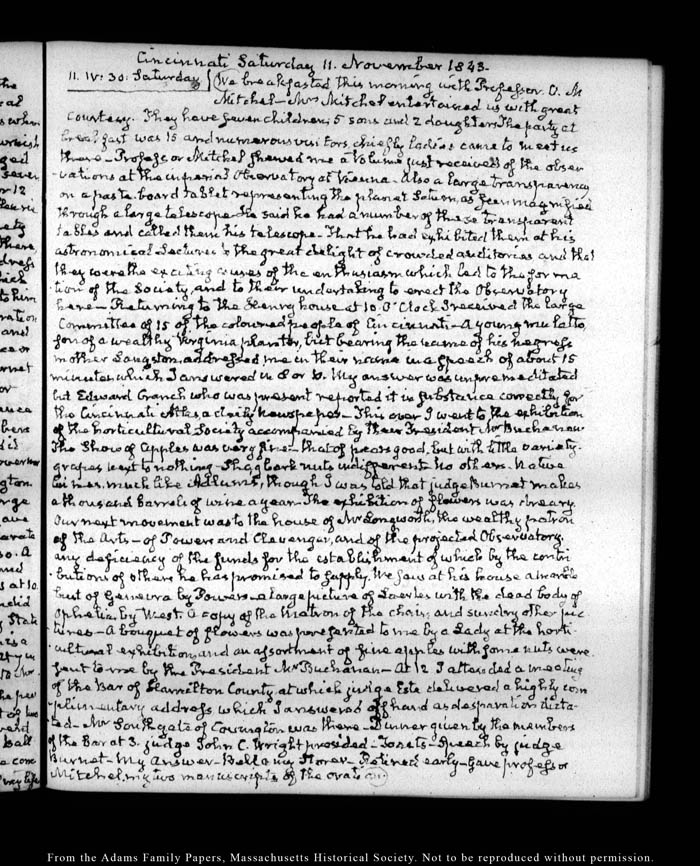 Cincinnati Saturday 11. November 1843.
11. IV: 30. Saturday We breakfasted this morning with Professor O. M
Mitchel — Mrs Mitchel entertained us with great
courtesy. They have seven children; 5 sons and 2 daughters The party at
breakfast was 15 and numerous visitors, chiefly ladies came to meet us
there — Professor Mitchel shewed me a volume just received of the obser-
-vations at the imperial Observatory at Vienna — Also a large transparency
on a paste-board tablet representing the planet Saturn, as seen magnified
through a large telescope — He said he had a number of these transparent
tables and called them his telescope — That he had exhibited them at his
astronomical Lectures to the great delight of crowded auditories and that
they were the exciting causes of the enthusiasm which led to the forma
tion of the Society, and to their undertaking to erect the Observatory
here — Returning to the Henry house at 10. O'Clock I received the large
Committee of 15 of the coloured people of Cincinnati — A young mulatto,
son of a wealthy Virginia planter, but bearing the name of his negress
mother Langston, addressed me in their name in a speech of about 15
minutes which I answered in 8 or 10. My answer was unpremeditated
but Edward Cranch who was present reported it in substance correctly for
the Cincinnati Atlas a daily newspaper — This over I went to the exhibition
of the horticultural Society accompanied by their President Mr Buchanan
The Show of apples was very fine — that of pears good, but with little variety.
grapes next to nothing — Shagbark nuts indifferent no others. Native
wines much like though I was told that judge Burnet makes
a thousand barrels of wine a year — The exhibition of flowers was dreary.
Our next movement was to the house of Mr Longworth, the wealthy patron
of the Arts — of Powers and Clevenger, and of the projected Observatory,
any deficiency of the funds for the establishment of which by the contri
butions of others he has promised to supply. We saw at his house a marble
bust of Genevra by Powers — a large picture of Laertes with the dead body of
Ophelia by West. a copy of the Matron of the chair, and sundry other pic
-tures — A bouquet of flowers was presented to me by a Lady at the horti
-cultural exhibition and an assortment of fine apples with some nuts were
sent to me by the President Mr Buchanan — At 12 I attended a meeting
of the Bar of Hamilton County, at which judge Este delivered a highly com
-plimentary address which I answered off hand as desparation dicta-
-ted — Mr Southgate of Covington was there — Dinner given by the members
of the Bar at 3. judge John C. Wright presided — Toasts — Speech by judge
Burnet — My answer — Bellamy Storer — Retired early — Gave professor
Mitchel my two manuscripts of the oration
From the Adams Family Papers, Massachusetts Historical Society. Not to be reproduced without permission.